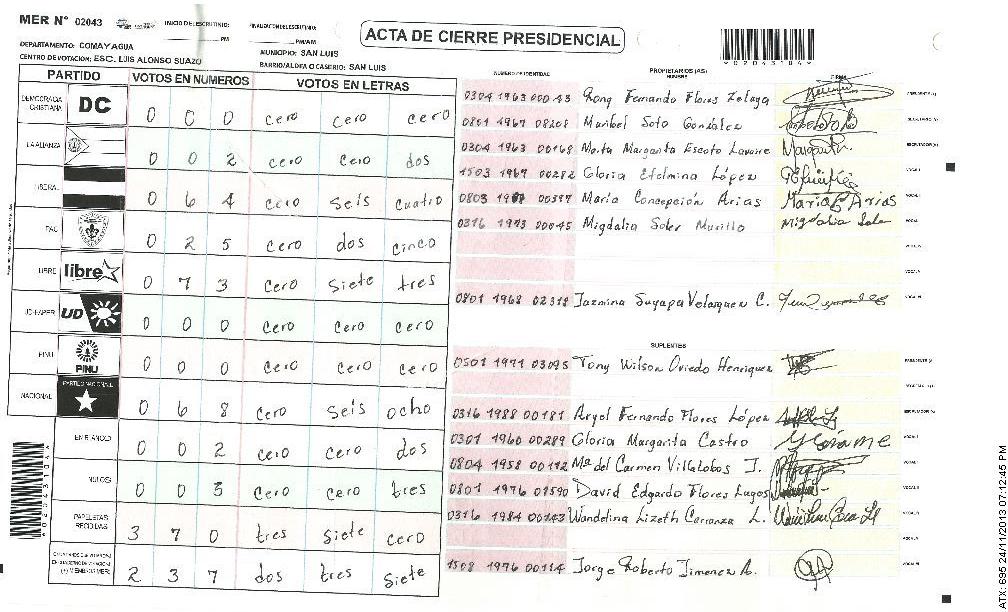 MER N° 02043
INICIO DEL ESCRUTINIO: PM
FINALIZACION DEL ESCRUTINIO: PM/AM
ACTA DE CIERRE PRESIDENCIAL
DEPARTAMENTO: COMAYAGUA
MUNICIPIO: SAN LUIS
CENTRO DE VOTACION: ESC. LUIS ALONSO SUAZO
BARRIO/ALDEA O CASERIO: SAN LUIS
PARTIDO VOTOS EN NUMEROS VOTOS EN LETRAS
DEMOCRACIA CRISTIANA DC 0 0 0 cero cero cero
LA ALIANZA 0 0 2 cero cero dos
LIBERAL 0 6 4 cero seis cuatro
PAC 0 2 5 cero dos cinco
LIBRE libre 0 7 3 cero siete tres
UD-FAPER UD 0 0 0 cero cero cero
PINU PINU 0 0 0 cero cero cero
NACIONAL PARTIDO NACIONAL 0 6 8 cero seis ocho
EN BLANCO 0 0 2 cero cero dos
NULOS 0 0 3 cero cero tres
PAPELETAS RECIBIDAS 3 7 0 tres siete cero
2 3 7 dos tres siete
NUMERO DE IDENTIDAD PROPIETARIOS (AS) NOMBRE FIRMA
0304 1963 00043 Rony Fernando Flores Zelaya
0801 1967 08208 Maribel Soto González
0304 1963 00168 Marta Margarita Escoto Margarita
1503 1967 00282 Gloria Etelmina López
0803 00397 María Concepción Arias Maria C Arias
0316 1973 00045 Migdalia Soler Murillo Migdalia Soler
0801 1968 02318 Jazmina Suyapa Velasquez C.
SUPLENTES
0501 1971 03095 Tony Wilson Oviedo Henriquez
0316 1988 00181 Argel Fernando Flores López
0301 1960 00289 Gloria Margarita Castro
0804 1958 00112 Mª del Carmen Villalobos J.
0801 1976 01590 David Edgardo Flores Lagos
0316 1984 00143 Wandelina Lizeth Carranza L.
1508 1976 00114 Jorge Roberto Jimenez A.
ATX: 695 24/11/2013 07:12:45 PM